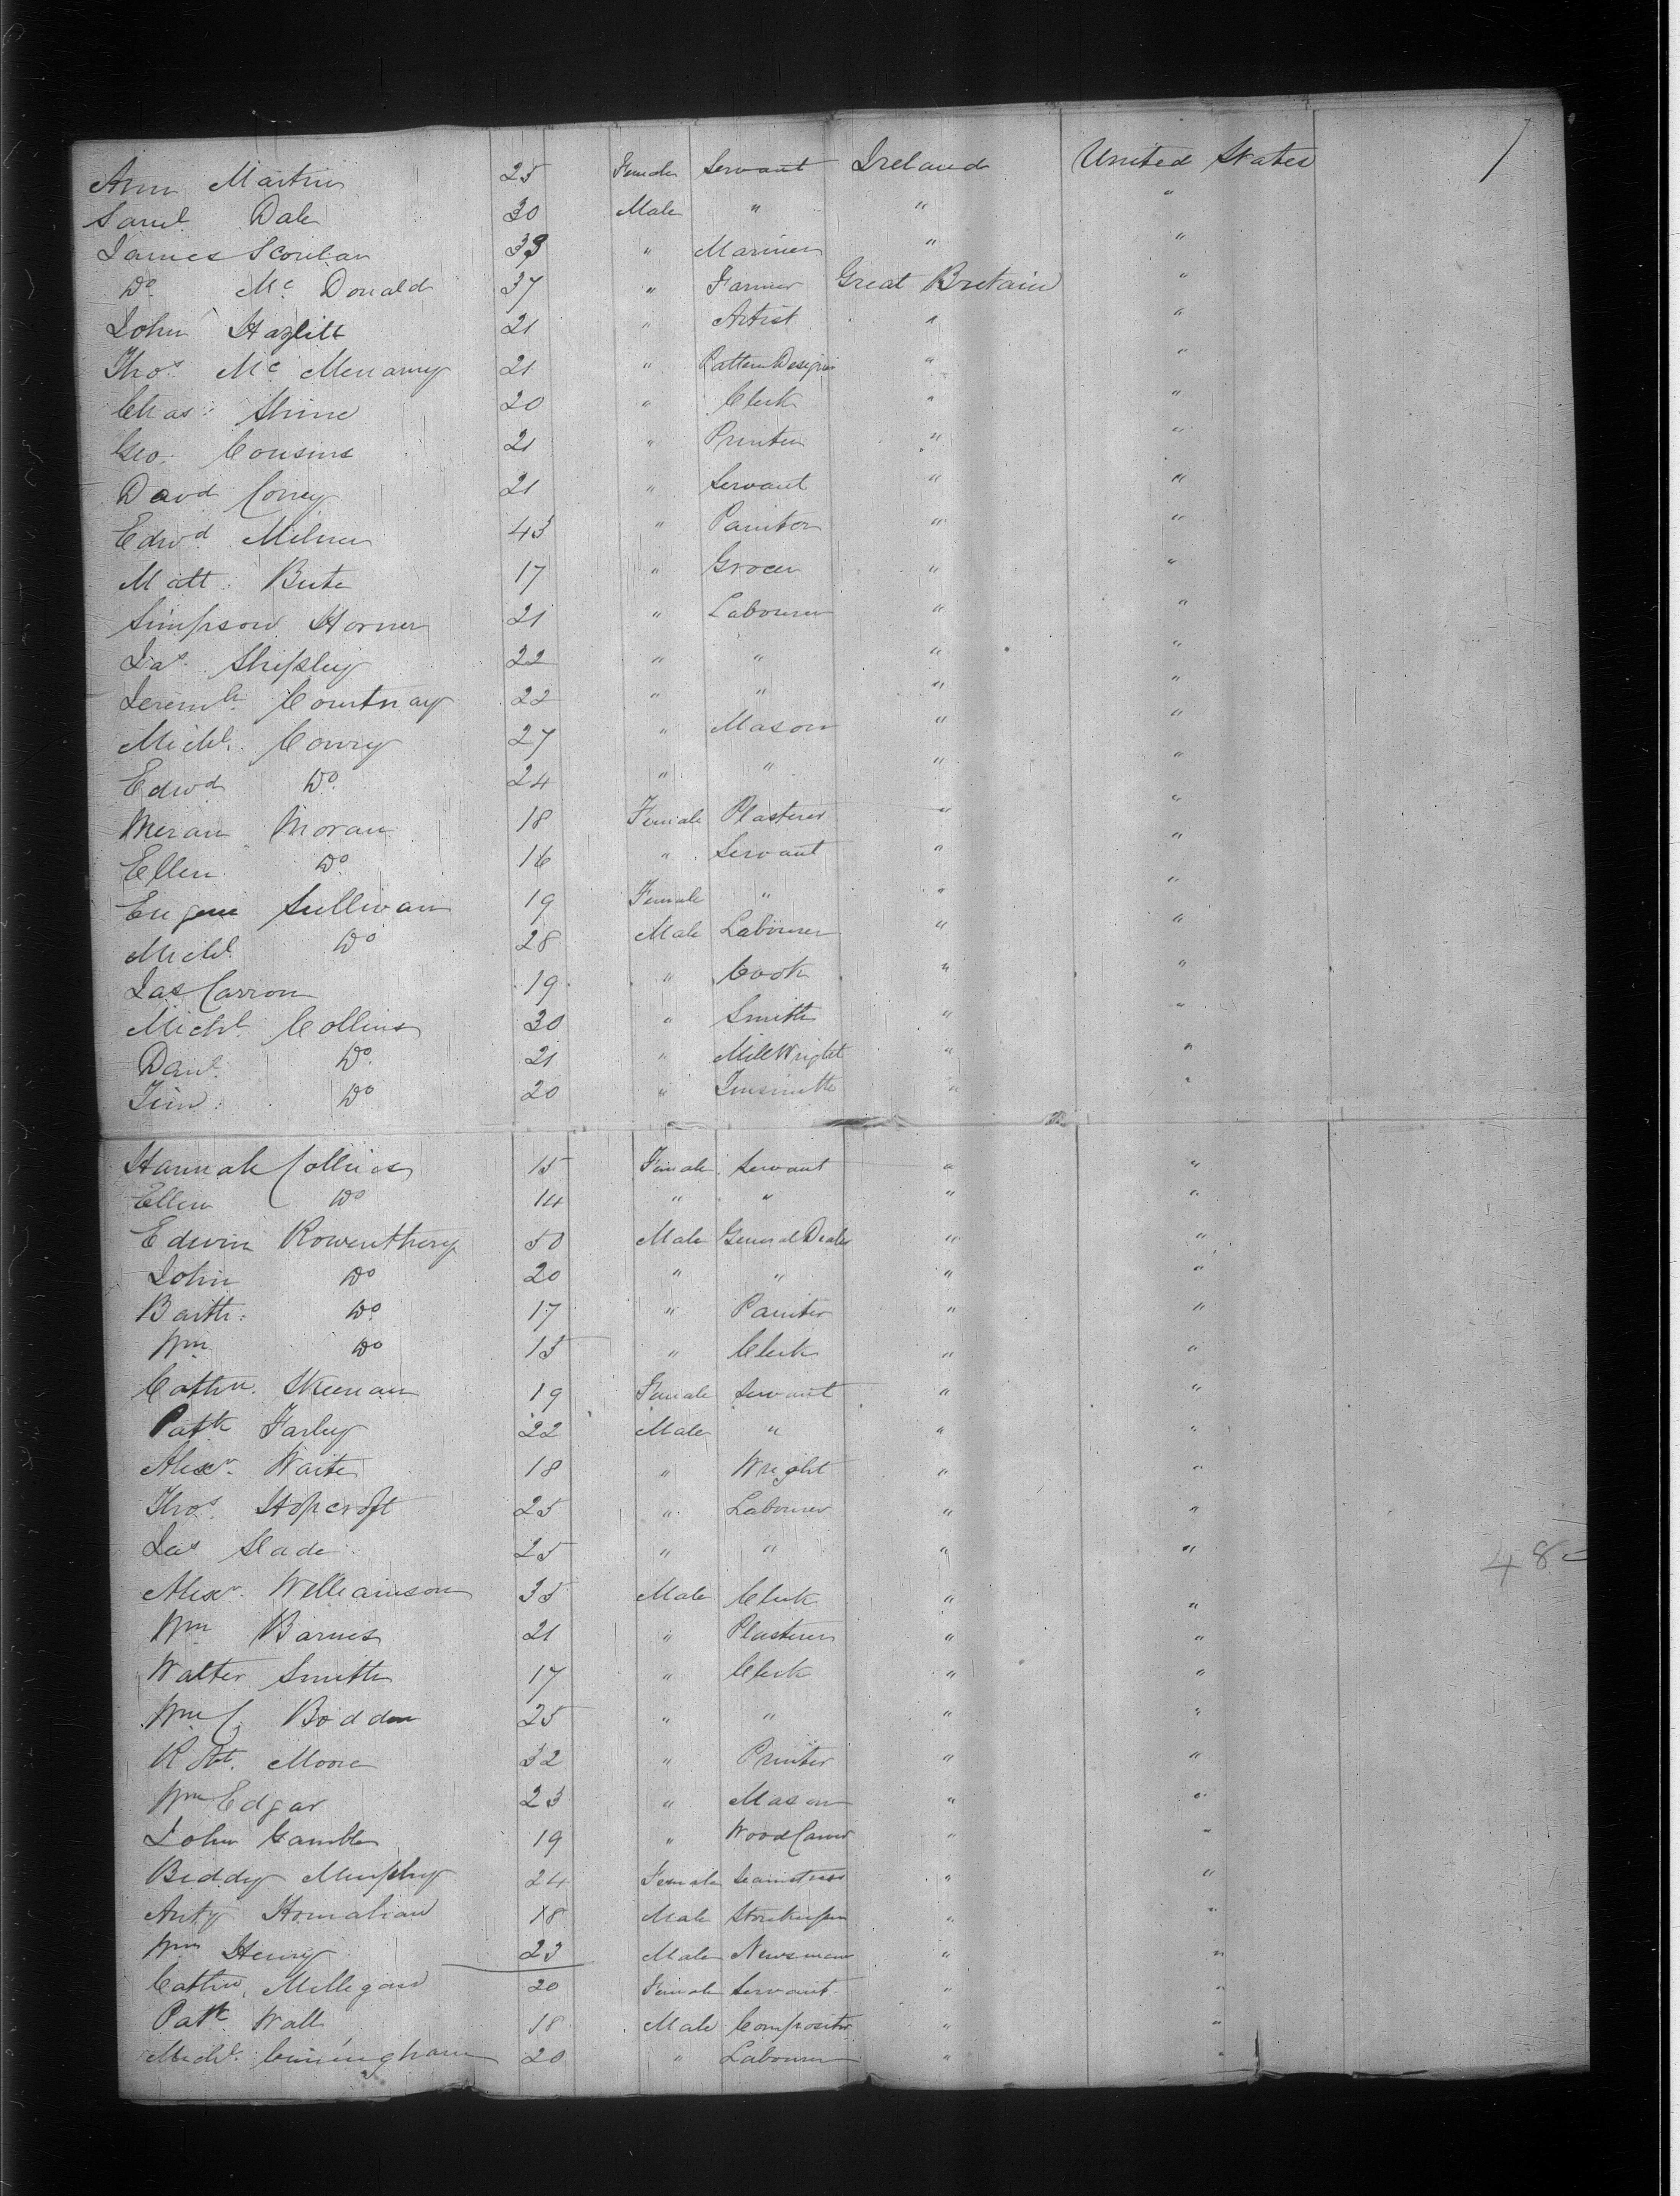 Ann Martin 25 Female Servant Ireland United States
Saml. Dale 30 Male " " "
James Scoulan 33 " Mariner " "
Do. Mc Donald 37 " Farmer Great Britain "
John Hazlitt 21 " Artist " "
Thos. Mc Menamy 21 " Pattern Designer " "
Chas: Shine 20 " Clerk " "
Geo. Cousins 21 " Printer " "
Davd Correy 21 " Servant " "
Edwd. Milner 43 " Painter " "
Matt. Bute 17 " Grocer " "
Simpson Horner 21 " Labourer " "
Jas. Shipley 22 " " " "
Jeremh. Courtnay 22 " " " "
Michl. Conry 27 " Mason " "
Edwd Do. 24 " " " "
Meran Moran 18 Female Plasterer " "
Ellen Do. 16 " Servant " "
Eugene Sullivan 19 Female " " "
Michl. Do 28 Male Labourer " "
Jas Carron 19 " Cook " "
Michl. Collins 30 " Smith " "
Danl. Do. 21 " Mill Wright " "
Tim: Do 20 " Tinsmith " "
Hannah Collins 15 Female Servant " "
Ellen Do 14 " " " "
Edwin Rowenthery 50 Male General Dealer " "
John Do 20 " " " "
Barth: Do. 17 " Painter " "
Wm Do 15 " Clerk " "
Cathn. Skeenan 19 Female Servant " "
Patk Farley 22 Male " " "
Alexr. Waite 18 " Wright " "
Thos. Hopcroft 25 " Labourer " "
Jas Slade 25 " " " "
48
Alexr. Williamson 35 Male Clerk " "
Wm Barnes 21 " Plasterer " "
Walter Smith 17 " Clerk " "
Wm C. Boddon 25 " " " "
Robt. Moore 32 " Printer " "
Wm Edgar 23 " Mason " "
John Gamble 19 " Wood Carver " "
Biddy Murphy 24 Female Seamstress " "
Anty Homalian 18 Male Storekeeper " "
Wm Henry 23 Male Newsman " "
Cathn. Milligan 20 Female Servant " "
Patk Wall 18 Male Compositor " "
Michl. Cuningham 20 " Labourer " "